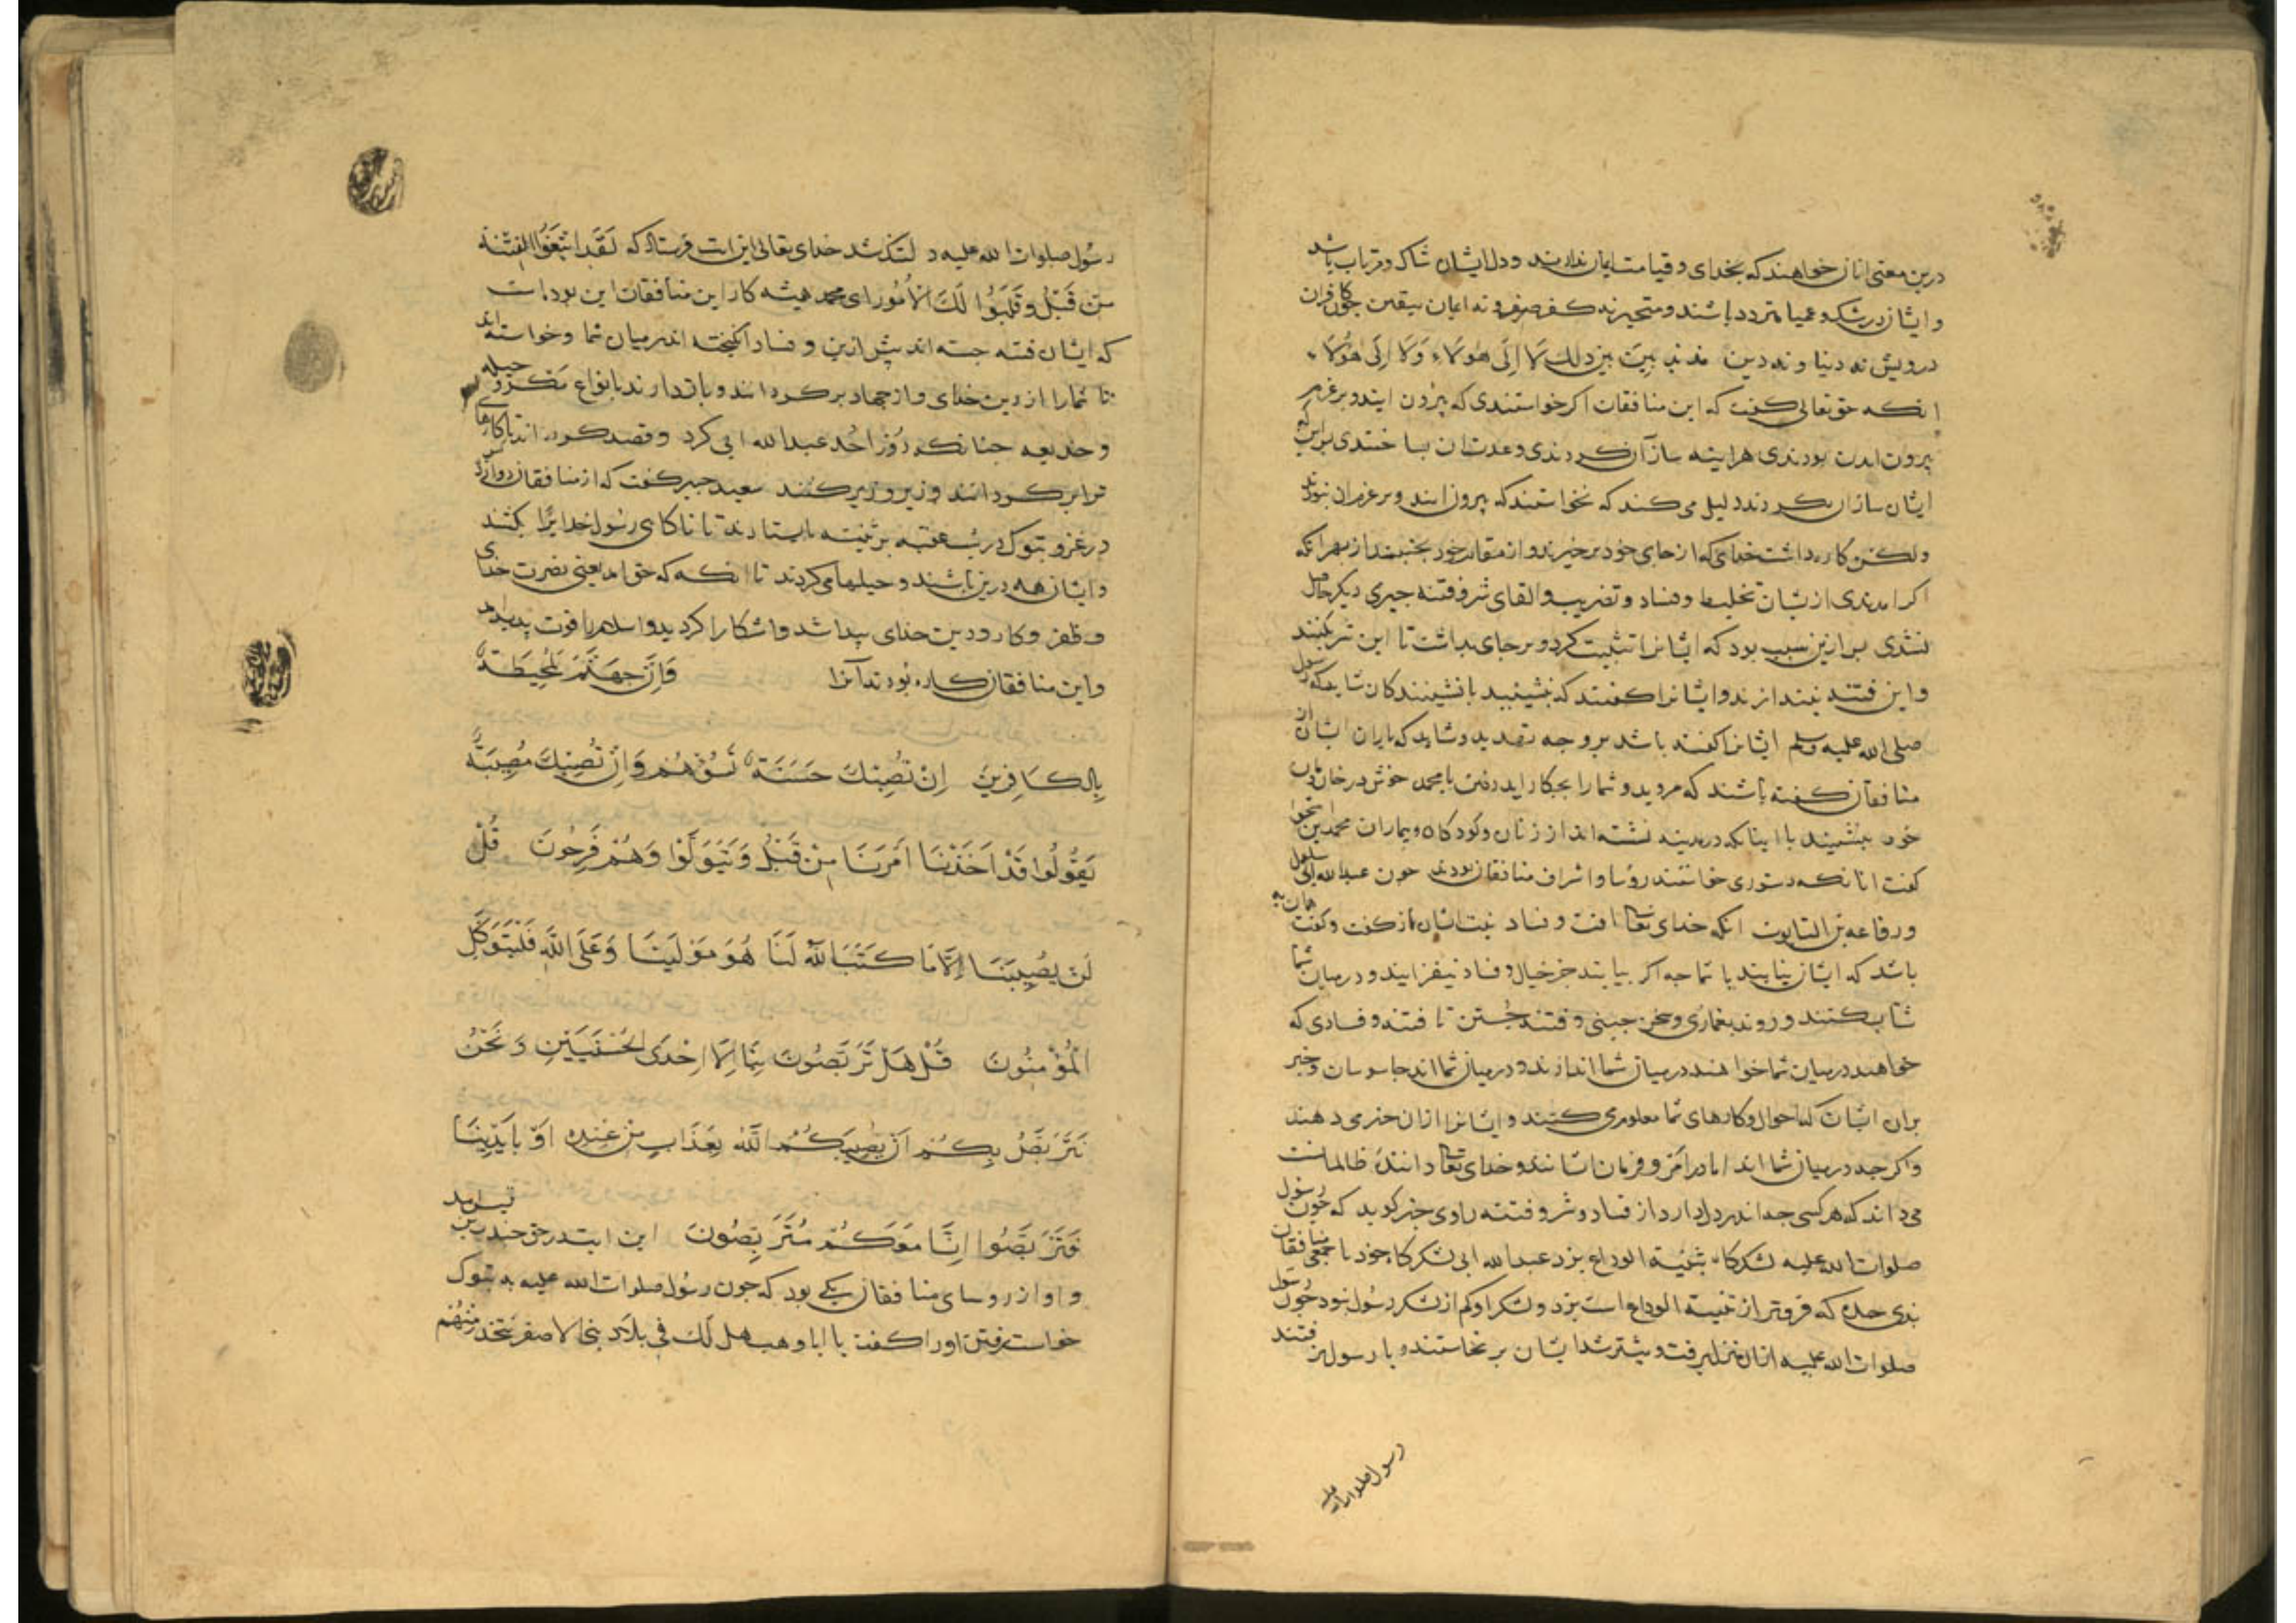 درین معنی انان خواهند که بخدای و قیامت ایمان ندارند و دل ایشان شاک و مرتاب باشد
و ایشان در شک و عمیا متردد باشند و متحیر نه کفر صرف و نه ایمان بیقین چون کافران
درویش نه دنیا و نه دین مذبذبین بین ذلک لا الی هولاء ولا الی هولاء
انکه حق تعالی کفت که این منافقان اکر خواستندی که بیرون ایند و بر عزم
بیرون امدن بودندی هراینه ساز آن کردندی وعدت ان بساختندی براین که
ایشان ساز ان نکردند دلیل می کند که نخواستند که بیرون ایند و بر عزم ان نبودند
ولکن کاره داشت خدای که از جای خود برخیزند و از مقام خود بجنبند از بهر انکه
اکر امدندی ازیشان تخلیط و فساد و تضریب و القای شر و فتنه چیزی دیکر حاصل
نشدی بس ازین سبب بود که ایشانرا تثبیت کرد و بر جای بداشت تا این شر نکنند
و این فتنه نیندازند و ایشانرا کفتند که بنشینید با نشینندکان شاید که رسول
صلی الله علیه وسلم ایشانرا کفته باشد بر وجه تهدید و شاید که یاران ایشان از
منافقان کفته باشند که مروید و شما را بچه کار اید رفتن با محمد خوش در خان و مان
خود بنشینید با اینانکه در مدینه نشسته اند از زنان و کودکان و بیماران محمد بن اسحق
کفت انانکه دستوری خواستند رؤسا و اشراف منافقان بودند چون عبدالله ابی سلول
و رفاعه بن التابوت انکه خدای تعالی افت و فساد نیت ایشان باز کفت و کفت همان به
باشد که ایشان نیایند با شما چه اکر بیایند جز خیال و فساد نیفزایند و در میان شما
شتاب کنند و روند بغمازی و سخن چینی و فتنه جستن تا فتنه و فسادی که
خواهند در میان شما خواهند در میان شما اندازند و در میان شما اند جاسوسان و خبر
بران ایشان که احوال و کارهای شما معلوم می کنند و ایشانرا ازان خبر می دهند
و اکر چه در میان شما اند اما در امر و فرمان ایشانند و خدای تعالی دانندۀ ظالمانست
می داند که هر کسی چه اندر دل دارد از فساد و شر و فتنه راوی خبر کوید که چون رسول
صلوات الله علیه لشکرکاه بثنیة الوداع بزد عبدالله ابی لشکرکاه خود با جمعی منافقان
بذی حده که فروتر از ثنیة الوداع است بزد و لشکر او کم از لشکر رسول نبود چون رسول
صلوات الله علیه ازان منزل برفت و بیشتر شد ایشان برنخاستند و با رسول نرفتند
رسول صلوات الله علیه
رسول صلوات الله علیه دلتنک شد خدای تعالی این ایت فرستاد که لَقَدِ ابْتَغَوُا الْفِتْنَةَ
مِنْ قَبْلُ وَقَلَّبُوا لَكَ الْاُمُورَ ای محمد همیشه کار این منافقان این بوده است
که ایشان فتنه جسته اند پیش ازین و فساد انکیخته اند در میان شما و خواسته اند
تا شما را از دین خدای و از جهاد برکردانند و بازدارند بانواع مکر و حیله
و خدیعه چنانکه روز احد عبدالله ابی کرد و قصد کرده اند تا کارهای
ترا برکردانند و زیر و زبر کنند سعید جبیر کفت که از منافقان دوازده کس
در غزو تبوک در شب عقبه بر ثنیه بایستادند تا ناکاه رسول خدایرا بکشند
و ایشان همه درین باشند و حیلها می کردند تا انکه که حق امد یعنی نصرت خدای
و ظفر و کار و دین خدای پیدا شد و اشکارا کردید و اسلام با قوت پدید امد
و این منافقان کاره بودند آنرا وَاِنَّ جَهَنَّمَ لَمُحِيطَةٌ
بِالْكَافِرِينَ اِنْ تُصِبْكَ حَسَنَةٌ تَسُؤْهُمْ وَاِنْ تُصِبْكَ مُصِيبَةٌ
يَقُولُوا قَدْ اَخَذْنَا اَمْرَنَا مِنْ قَبْلُ وَيَتَوَلَّوْا وَهُمْ فَرِحُونَ قُلْ
لَنْ يُصِيبَنَا اِلَّا مَا كَتَبَ اللّٰهُ لَنَا هُوَ مَوْلَيْنَا وَعَلَى اللّٰهِ فَلْيَتَوَكَّلِ
الْمُؤْمِنُونَ قُلْ هَلْ تَرَبَّصُونَ بِنَا اِلَّا اِحْدَى الْحُسْنَيَيْنِ وَنَحْنُ
نَتَرَبَّصُ بِكُمْ اَنْ يُصِيبَكُمُ اللّٰهُ بِعَذَابٍ مِنْ عِنْدِهِ اَوْ بِاَيْدِينَا
فَتَرَبَّصُوا اِنَّا مَعَكُمْ مُتَرَبِّصُونَ این ایت در حق جد بن قیس امد
و او از روسای منافقان یکی بود که چون رسول صلوات الله علیه به تبوک
خواست رفتن او را کفت یا ابا وهب هل لک فی بلاد بنی الاصفر تتخذ منهم